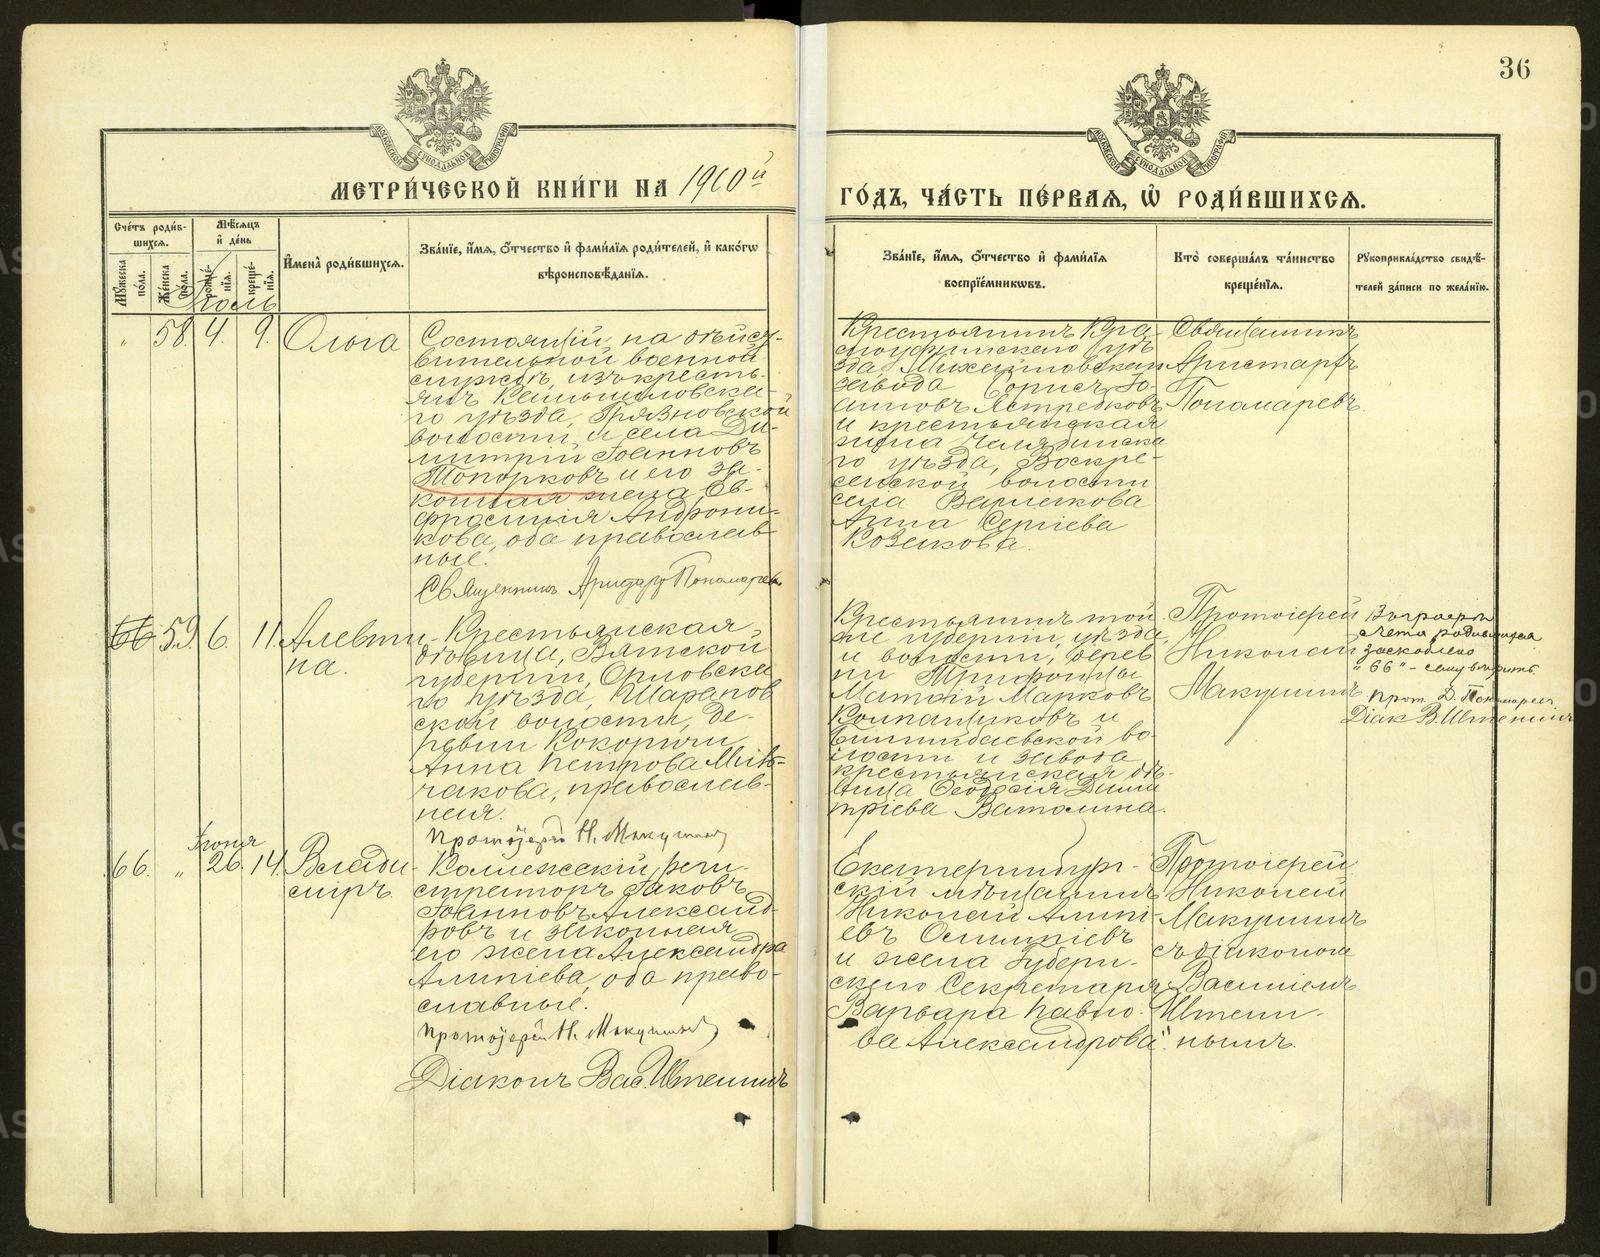 36
МОСКОВСКОЙ СѴНОДАЛЬНОЙ ТИПОГРАФІИ
МОСКОВСКОЙ СѴНОДАЛЬНОЙ ТИПОГРАФІИ
МЕТРИ́ЧЕСКОЙ КНИ́ГИ НА 1910й
ГО́ДЪ, ЧА́СТЬ ПЕ́РВАЯ, Ѡ҆ РОДИ́ВШИХСЯ.
Сче́тъ роди́в-
шихся.
Мѣ́сяцъ
и҆ де́нь
Мꙋ́жеска
по́ла.
Же́нска
по́ла.
рожде́-
нїя.
креще́-
нїя.
И҆мена̀ роди́вшихся.
Зва́нїе, и҆́мя, ѻ҆́тчество и҆ фами́лїя роди́телей, и҆ како́гѡ
вѣроисповѣ́данїя.
Зва́нїе, и҆́мя, ѻ҆́тчество и҆ фами́лїя
воспрїе́мникѡвъ.
Кто̀ соверша́лъ та́инство
креще́нїя.
Рꙋкоприкла́дство свидѣ́-
телей за́писи по жела́нїю.
Іюль
" 58. 4. 9. Ольга
Состоящій на дѣйст-
вительной военной
службѣ, изъ кресть-
янъ Камышловска-
го уѣзда, Грязновской
волости и села Ди-
митрій Іоанновъ
Топорковъ и его за-
конная жена Ев-
фросинія Андрони-
кова, оба православ-
ные.
Священникъ Аристархъ Пономаревъ
Крестьянинъ Кра-
сноуфимскаго уѣ-
зда, Михайловскаго
завода Борисъ Іо-
анновъ Ястребковъ
и крестьянская
жена Челябинска-
го уѣзда, Воскре-
сенской волости
села Варлакова
Анна Сергіева
Козлкова.
Священникъ
Аристархъ
Пономаревъ.
66 59. 6. 11. Алевти-
на.
Крестьянская
дѣвица, Вятской
губерніи, Орловска-
го уѣзда, Шаранов
ской волости, де-
ревни Кокоричи
Анна Петрова Мик-
чакова, православ-
ная.
Протоіерей Н. Макушинъ
Крестьянинъ той-
же губерніи, уѣзда
и волости, дерев
ни Трифонцы
Матвій Марковъ
Колпащиковъ и
Билимбаевской во-
лости и завода
крестьянская дѣ-
вица Ѳеодосія Дими
тріева Ватолина.
Протоіерей
Николай
Макушинъ
Въ графѣ
счета родившихся
зачеркнуто
"66" - сему вѣрить.
Прот. Д. Пономаревъ
Діак. В. Иштенинъ
Іюня
66. " 26. 14. Влади-
міръ.
Коллежскій реги-
страторъ Іаковъ
Іоанновъ Александ-
ровъ и законная
его жена Александра
Алипіева, оба право-
славные.
Протоіерей Н. Макушинъ
Діаконъ Вас. Иштенинъ
Екатеринбург-
скій мѣщанинъ
Николай Алипі-
евъ Осмипіевъ
и жена Губерн-
скаго Секретаря
Варвара Павло-
ва Александрова.
Протоіерей
Николай
Макушинъ
съ діакономъ
Василіемъ
Иштени-
нымъ.